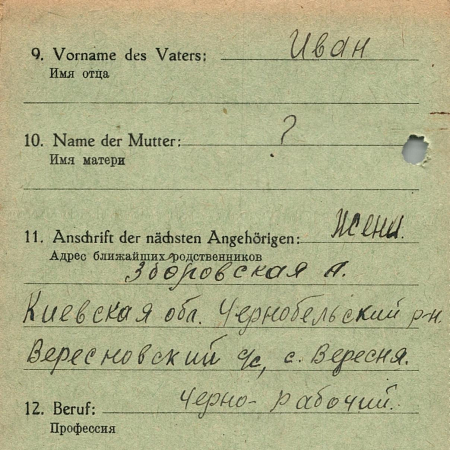 9. Vorname des Vaters: Иван
Имя отца
10. Name der Mutter: ?
Имя матери
11. Anschrift der nächsten Angehörigen: Жены.
Адрес ближайших родственников
Зборовская А.
Киевская обл. Чернобельский р-н
Вересновский с/с, с. Вересня.
12. Beruf: Черно-рабочий.
Профессия